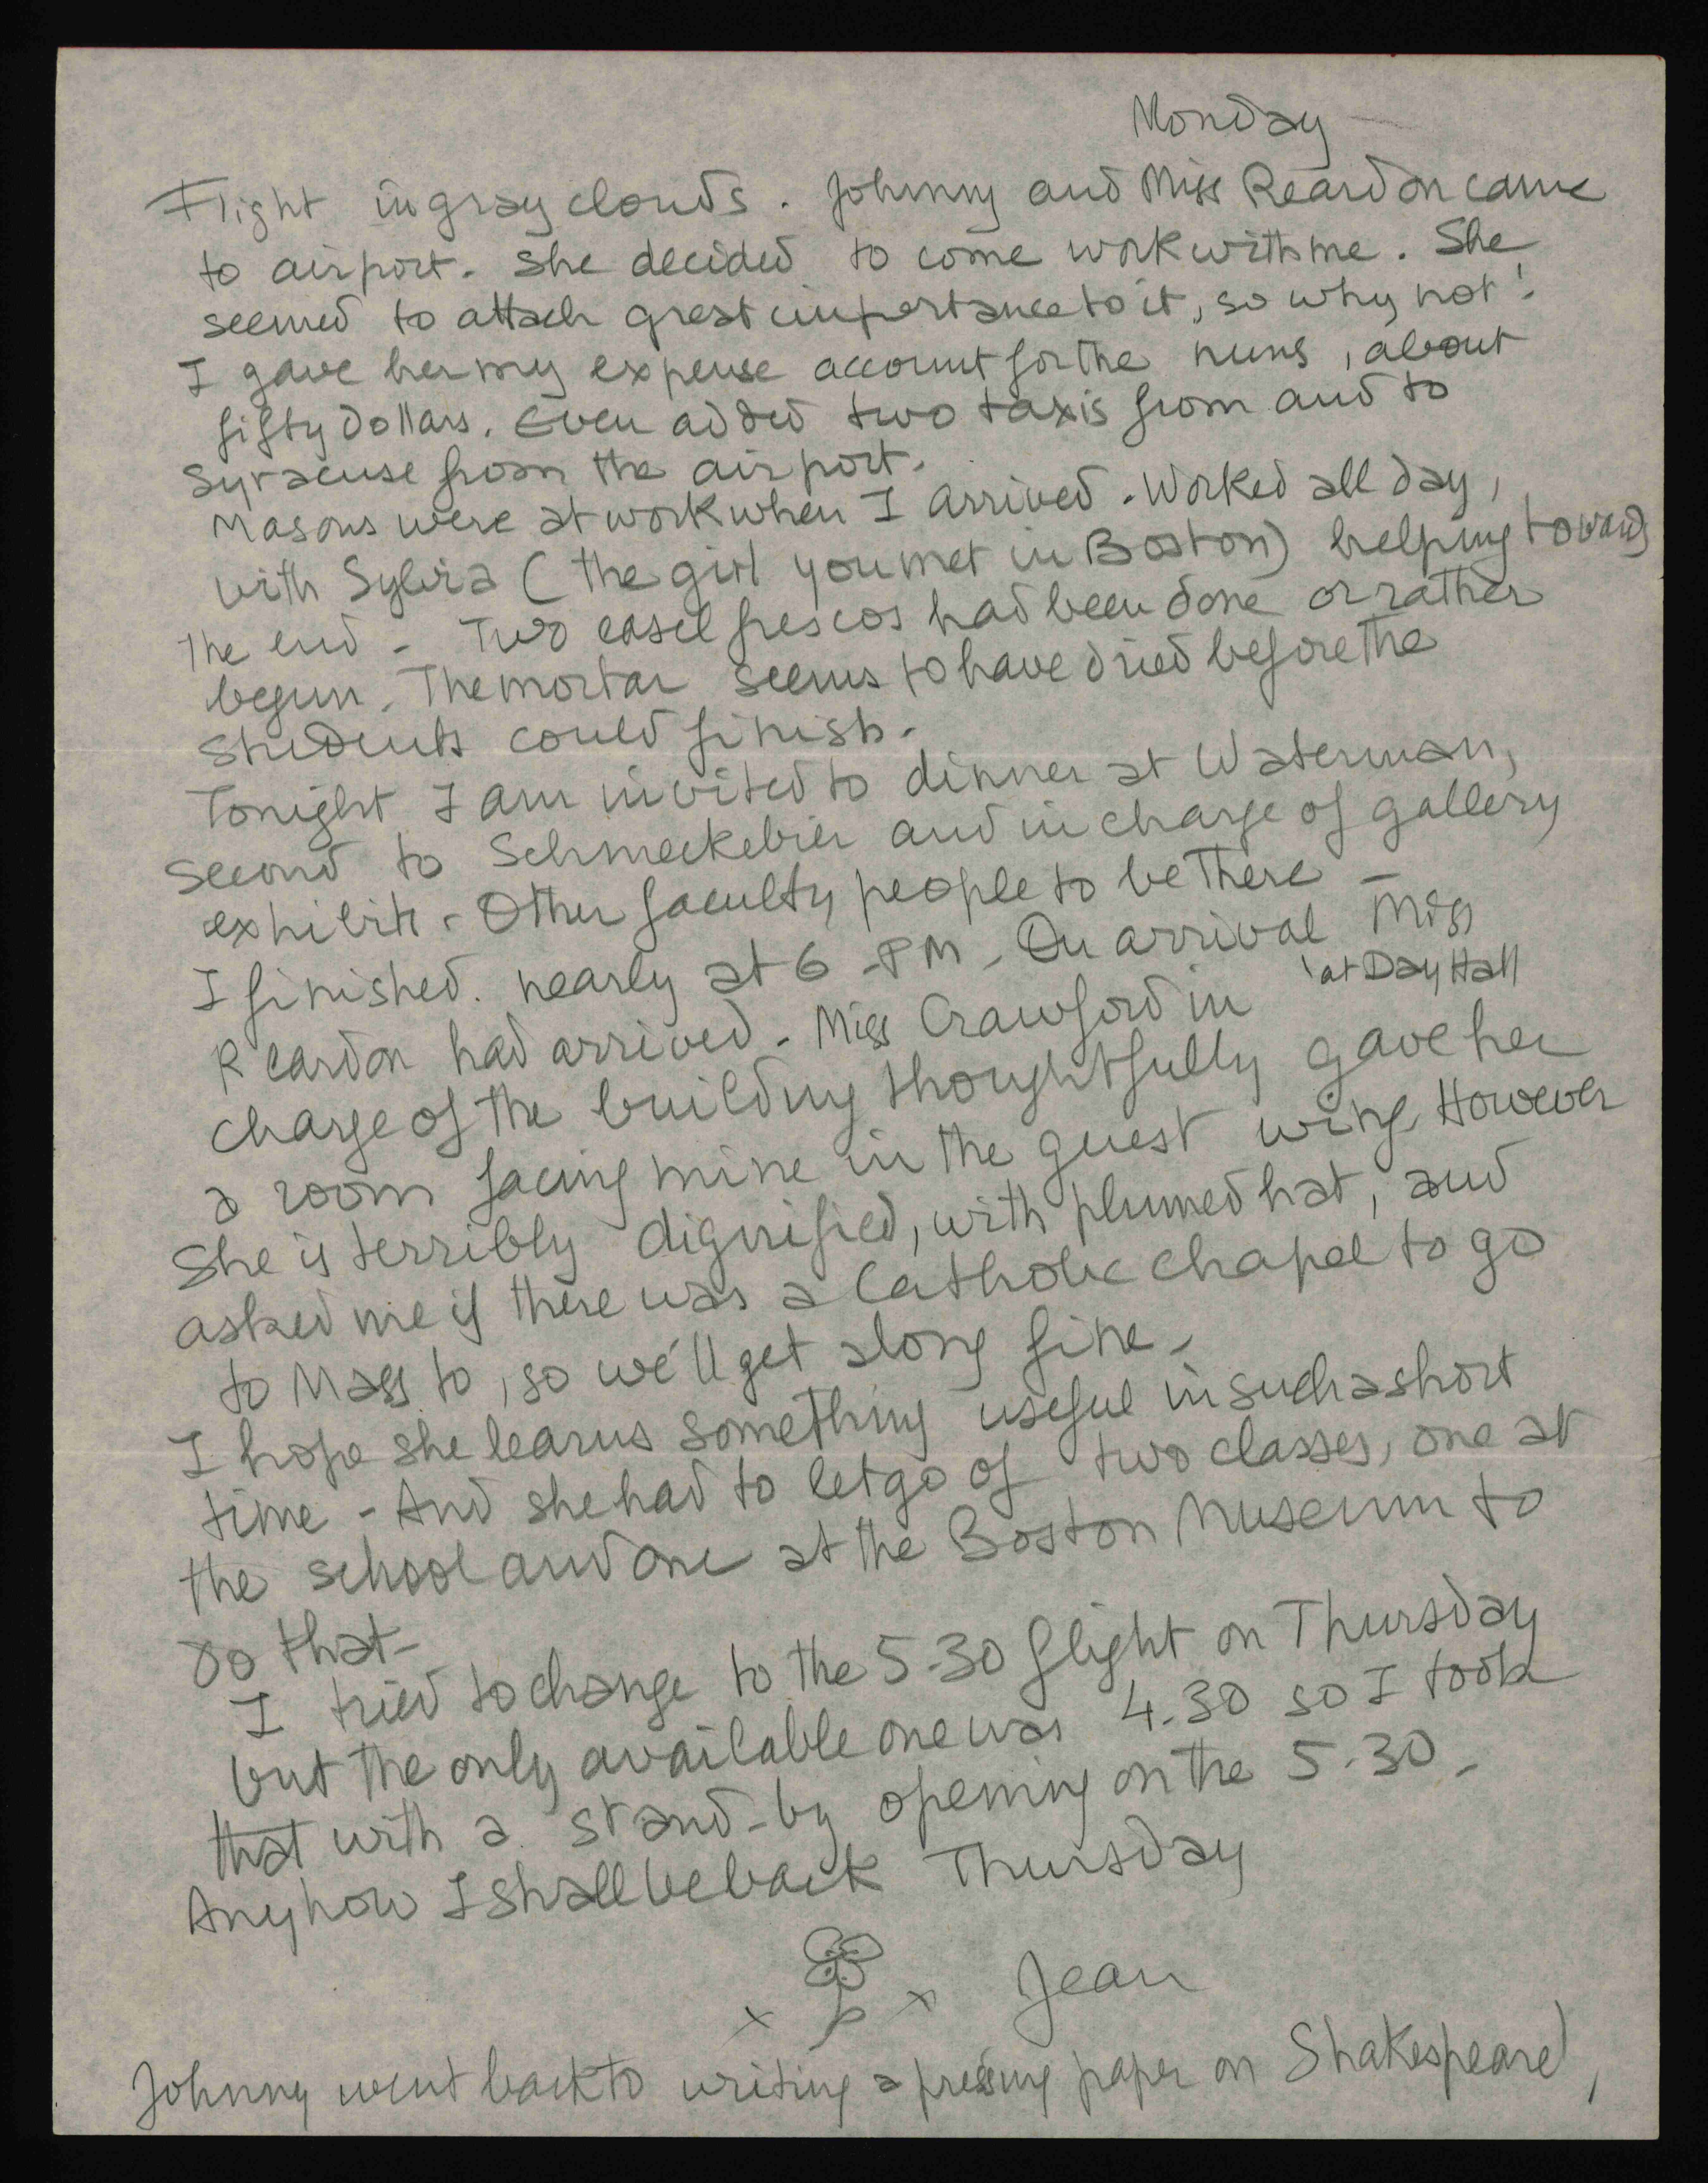 Monday
Flight in gray clouds. Johnny and Miss Reardon came
to airport. She decided to come work with me. She
seemed to attach great importance to it, so why not!
I gave her my expense account for the nuns, about
fifty dollars. Even added two taxis from and to
Syracuse from the airport.
Masons were at work when I arrived. Worked all day,
with Sylvia (the girl you met in Boston) helping towards
the end - Two easel frescos had been done or rather
begun. The mortar seems to have dried before the
students could finish.
Tonight I am invited to dinner at Waterman,
second to Schmeckebier and in charge of gallery
exhibits. Other faculty people to be there -
I finished nearly at 6 PM - On arrival Miss
at Day Hall
Reardon had arrived. Miss Crawford in
charge of the building thoughtfully gave her
a room facing mine in the guest wing. However
she is terribly dignified, with plumed hat, and
asked me if there was a Catholic chapel to go
to Mass to, so we'll get along fine.
I hope she learns something useful in such a short
time - And she had to let go of two classes, one at
the school and one at the Boston Museum to
do that -
I tried to change to the 5.30 flight on Thursday
but the only available one was 4.30 so I took
that with a stand-by opening on the 5.30 -
Anyhow I shall be back Thursday
x x Jean
Johnny went back to writing a pressing paper on Shakespeare,